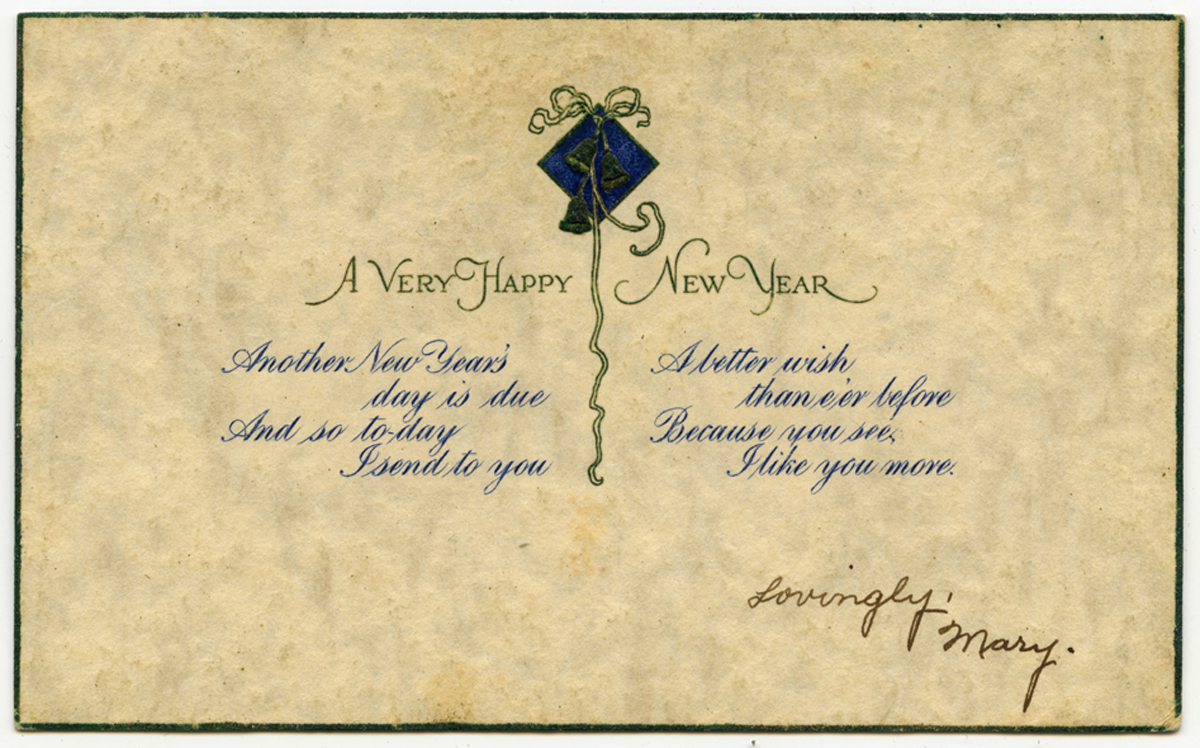 A VERY HAPPY NEW YEAR
Another New Year's
day is due
And so to-day
I send to you
A better wish
than e'er before
Because you see,
I like you more.
Lovingly,
Mary.